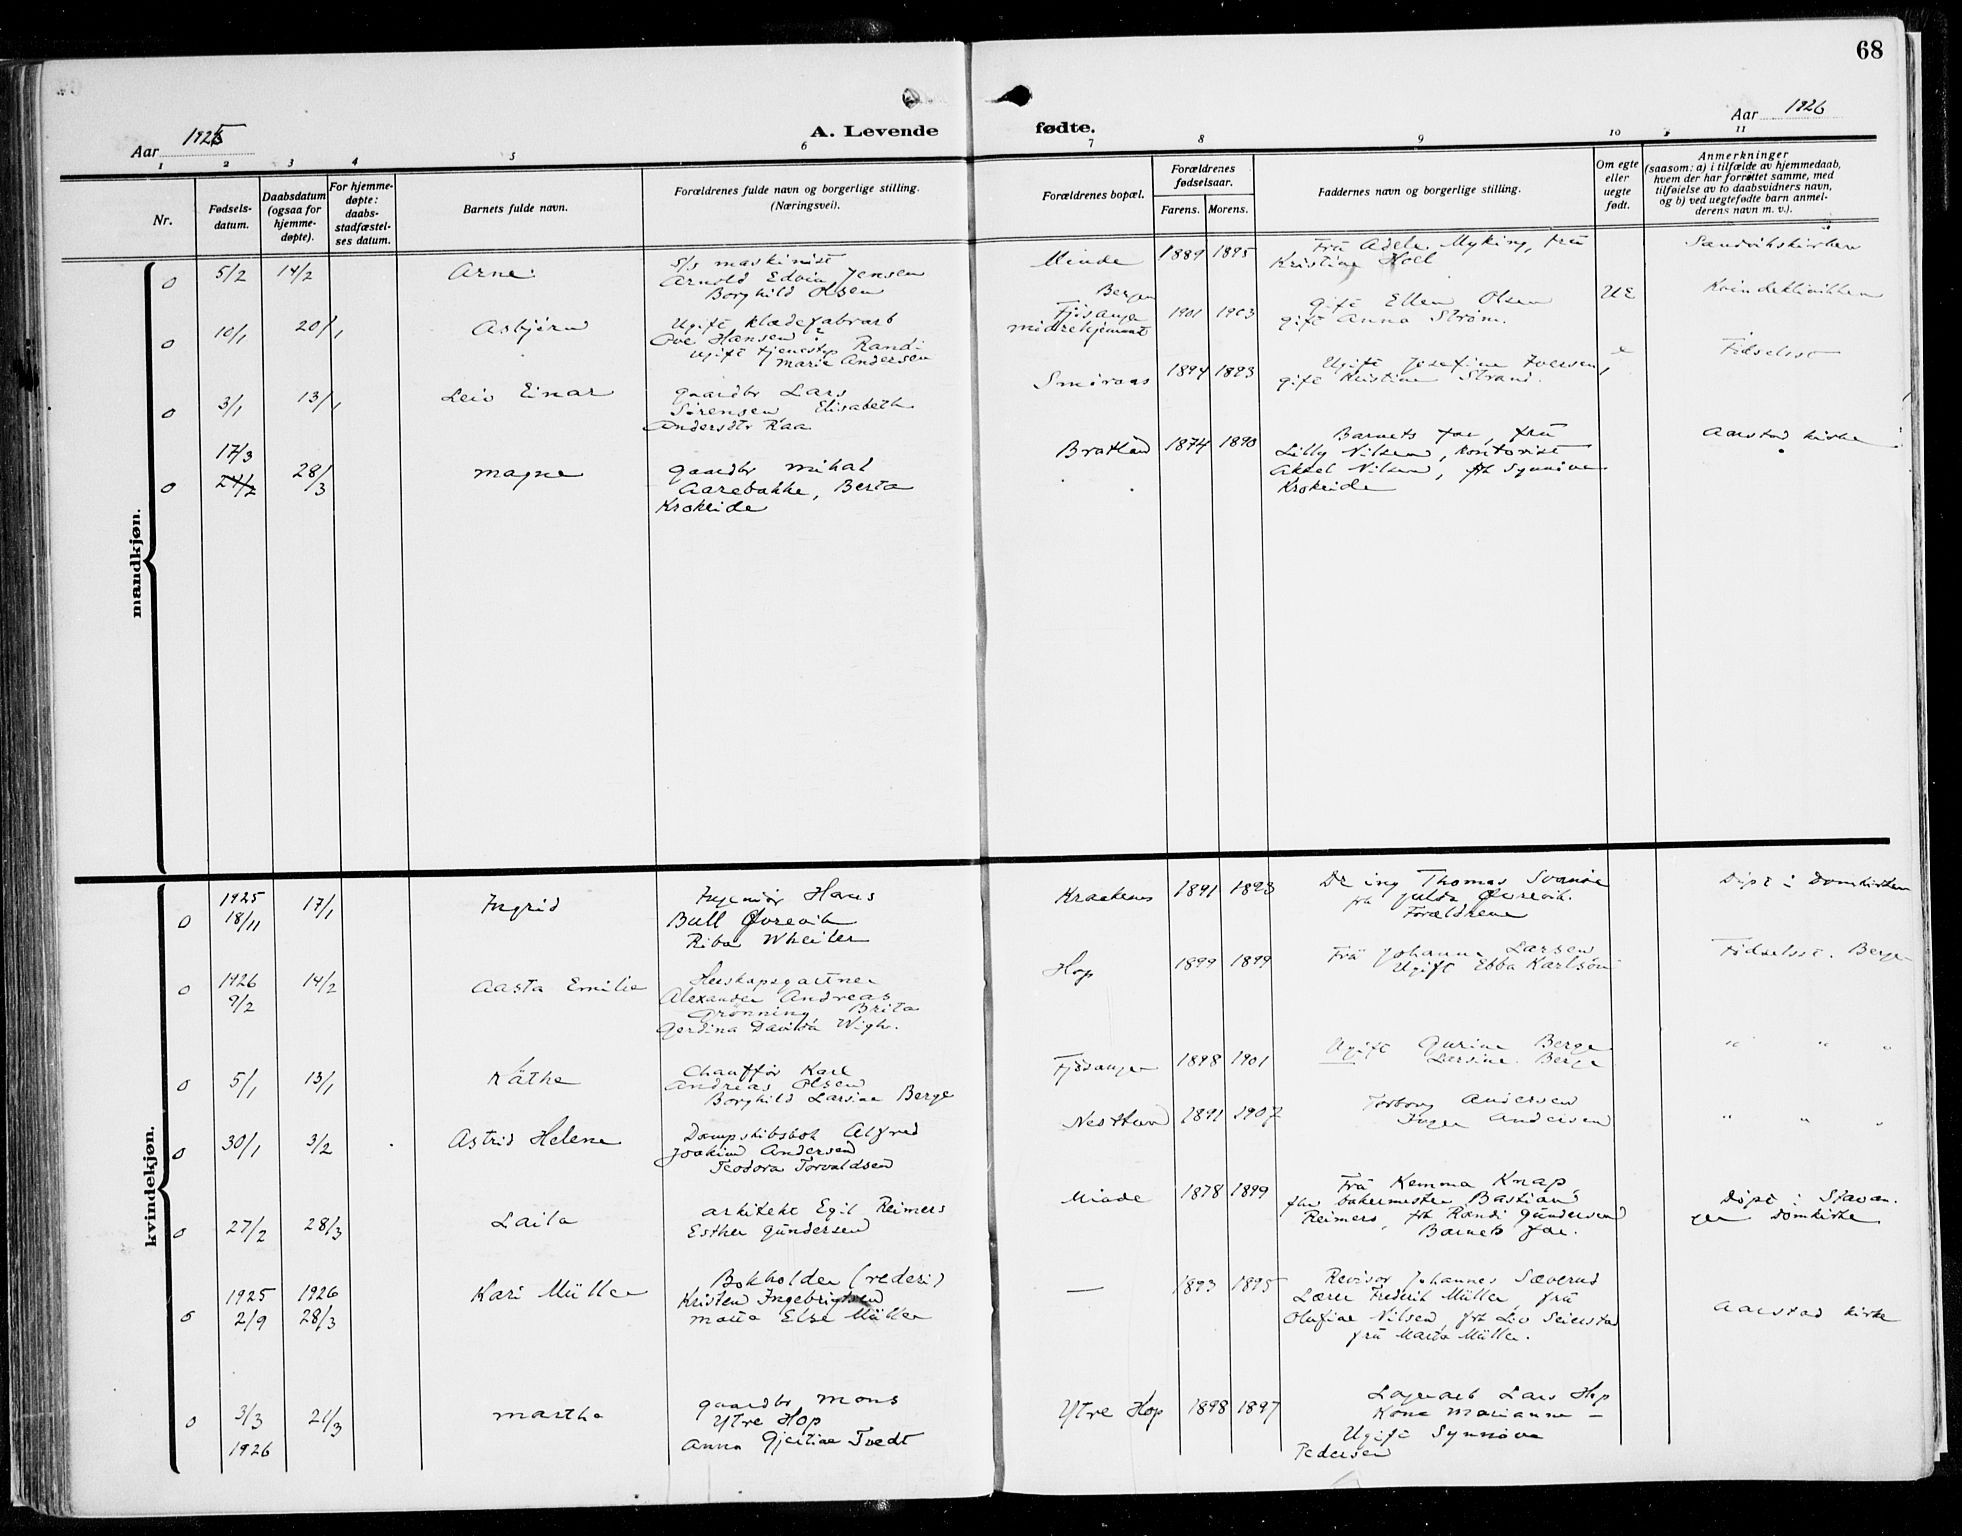 68
Aar 1925
A. Levende fødte.
Aar 1926
1 2 3 4 5 6 7 8 9 10 11
Nr.
Fødsels-
datum.
Daabsdatum
(ogsaa for
hjemme-
døpte).
For hjemme-
døpte:
daabs-
stadfæstel-
ses datum.
Barnets fulde navn.
Forældrenes fulde navn og borgerlige stilling.
(Næringsvei).
Forældrenes bopæl.
Forældrenes
fødselsaar.
Farens. Morens.
Faddernes navn og borgerlige stilling.
Om egte
eller
uegte
født.
Anmerkninger
(saasom: a) i tilfælde av hjemmedaab,
hvem der har forrettet samme, med
tilføielse av to daabsvidners navn,
og b) ved uegtefødte barn anmel-
derens navn m. v.).
mandkjøn.
0 5/2 14/2 Arne
S/S maskinist
Arnold Edvin Jensen
Borghild Olsen
Minde 1889 1895
Frü Adele Myking, frü
Kristine Hoel
Sandvikskirken
0 10/1 20/1 Asbjørn
Ugift klædefabrarb
Ove Hansen
ugift tjenestp Randi
Marie Andersen
Bergen
Fjøsanger
midrehjemmet
1901 1903
gift Ellen Olsen
gift Anna Strøm.
UE
Kvindeklinikken
0 3/1 13/1 Leiv Einar
gaardbr Lars
Sørensen Elisabeth
Andersdtr Raa
Smøraas 1894 1893
Ugift Josefine Iversen,
gift Kristine Strand.
Fødselsst
0 17/3
24/2
28/3 Magne
gaardbr Mikal
Aarebakke, Berta
Krokeide
Bratland 1874 1890
Barnets far, frü
Lilly Nilsen, kontorist
Aksel Nilsen, frk Synnøve
Krokeide
Aarstad kirke
kvindekjøn.
0 1925
18/11 17/1 Ingrid
Ingeniør Hans
Bull Øvrevik
Riba Wheiler
Kraakenes 1891 1893
Dr ing Thomas Svanøe
frk Julda Øvrevik.
Forældrene
Døpt i Domkirken
0 1926
9/2 14/2 Aasta Emilie
Herskapsgartner
Alexander Andreas
Grønning Brita
Gerdina Davida Wigh.
Hop 1899 1899
Frü Johanne Larsen
Ugift Ebba Karlson
Fødselsst. Bergen
0 5/1 13/1 Käthe
Chauffør Karl
Andreas Olsen
Borghild Larsine Berge
Fjøsanger 1898 1901
Ugift Gurine Berge
Larsine Berge
" " "
0 30/1 3/2 Astrid Helene
Dampskibsbok Alfred
Joakim Andersen
Teodora Torvaldsen
Nesttun 1891 1907
Torborg Andersen
Inger Andersen
" " "
0 27/2 28/3 Laila
arkitekt Egil Reimers
Esther Gündersen
Minde 1878 1899
Frü Kemma Knap,
fhv bakermester Bastian
Reimers, frk Randi Gündersen
Barnets far.
Døpt i Stavan-
ger Domkirke
0 1925
2/9
1926
28/3 Kari Müller
Bokholder (rederi)
Kristen Ingebrigtsen
Maria Else Müller
— 1893 1895
Revisor Johannes Sæverud
Lærer Frederik Müller, frü
Olufine Nilsen, frk Liv Seierstad
frü Marta Müller.
Aarstad kirke
0 3/3
1926
21/3 Martha
gaardbr Mons
Ytre Hop
Anna Gjertine Tvedt
Ytre Hop 1898 1897
Lagerarb Lars Hop
Kone Marianne —
Ugift Synnøve
Pedersen